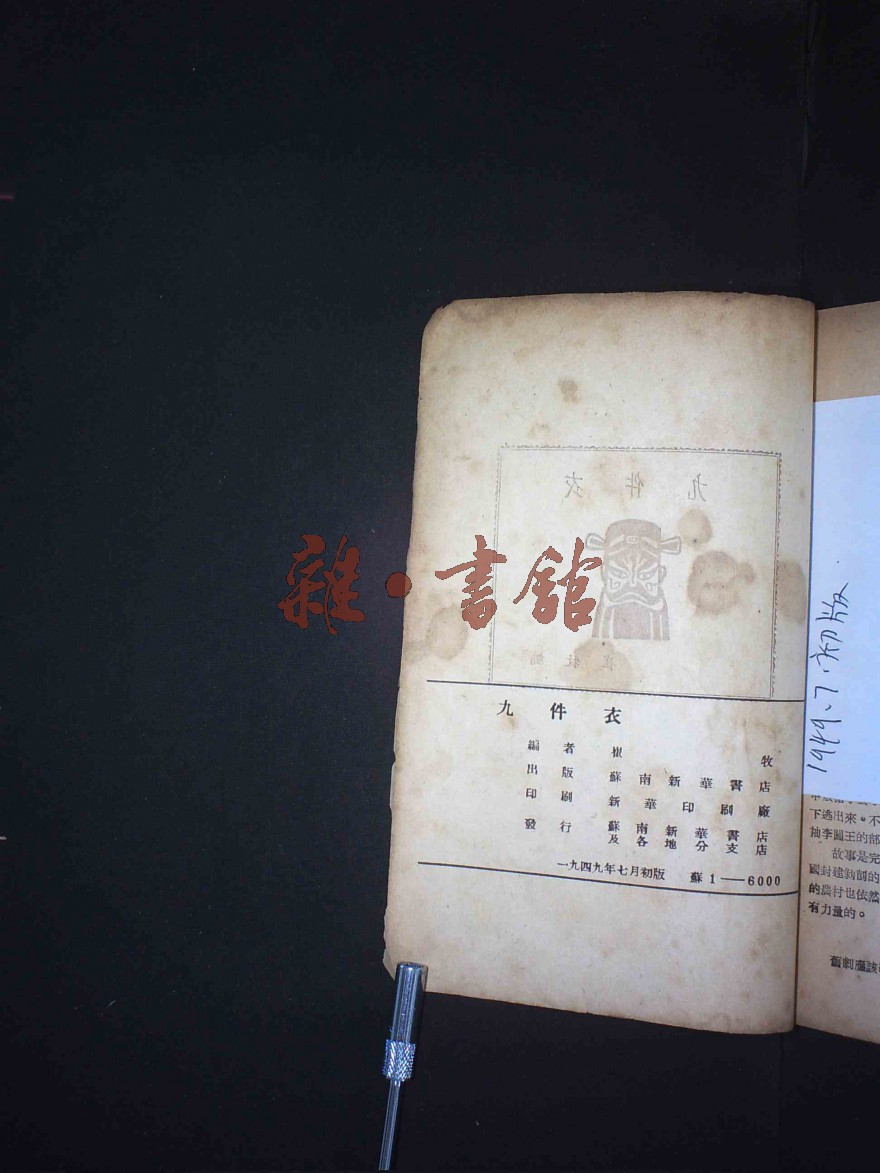 九件衣
崔牧編
雜·書館
九件衣
編者 崔牧
出版 蘇南新華書店
印刷 新華印刷廠
發行 蘇南新華書店
及各地分支店
一九四九年七月初版 蘇1—6000
1949.7.初版
下逃出來。不
抽李闖王的部
故事是完
國封建剝削的
的農村也依然
有力量的。
舊劇應該